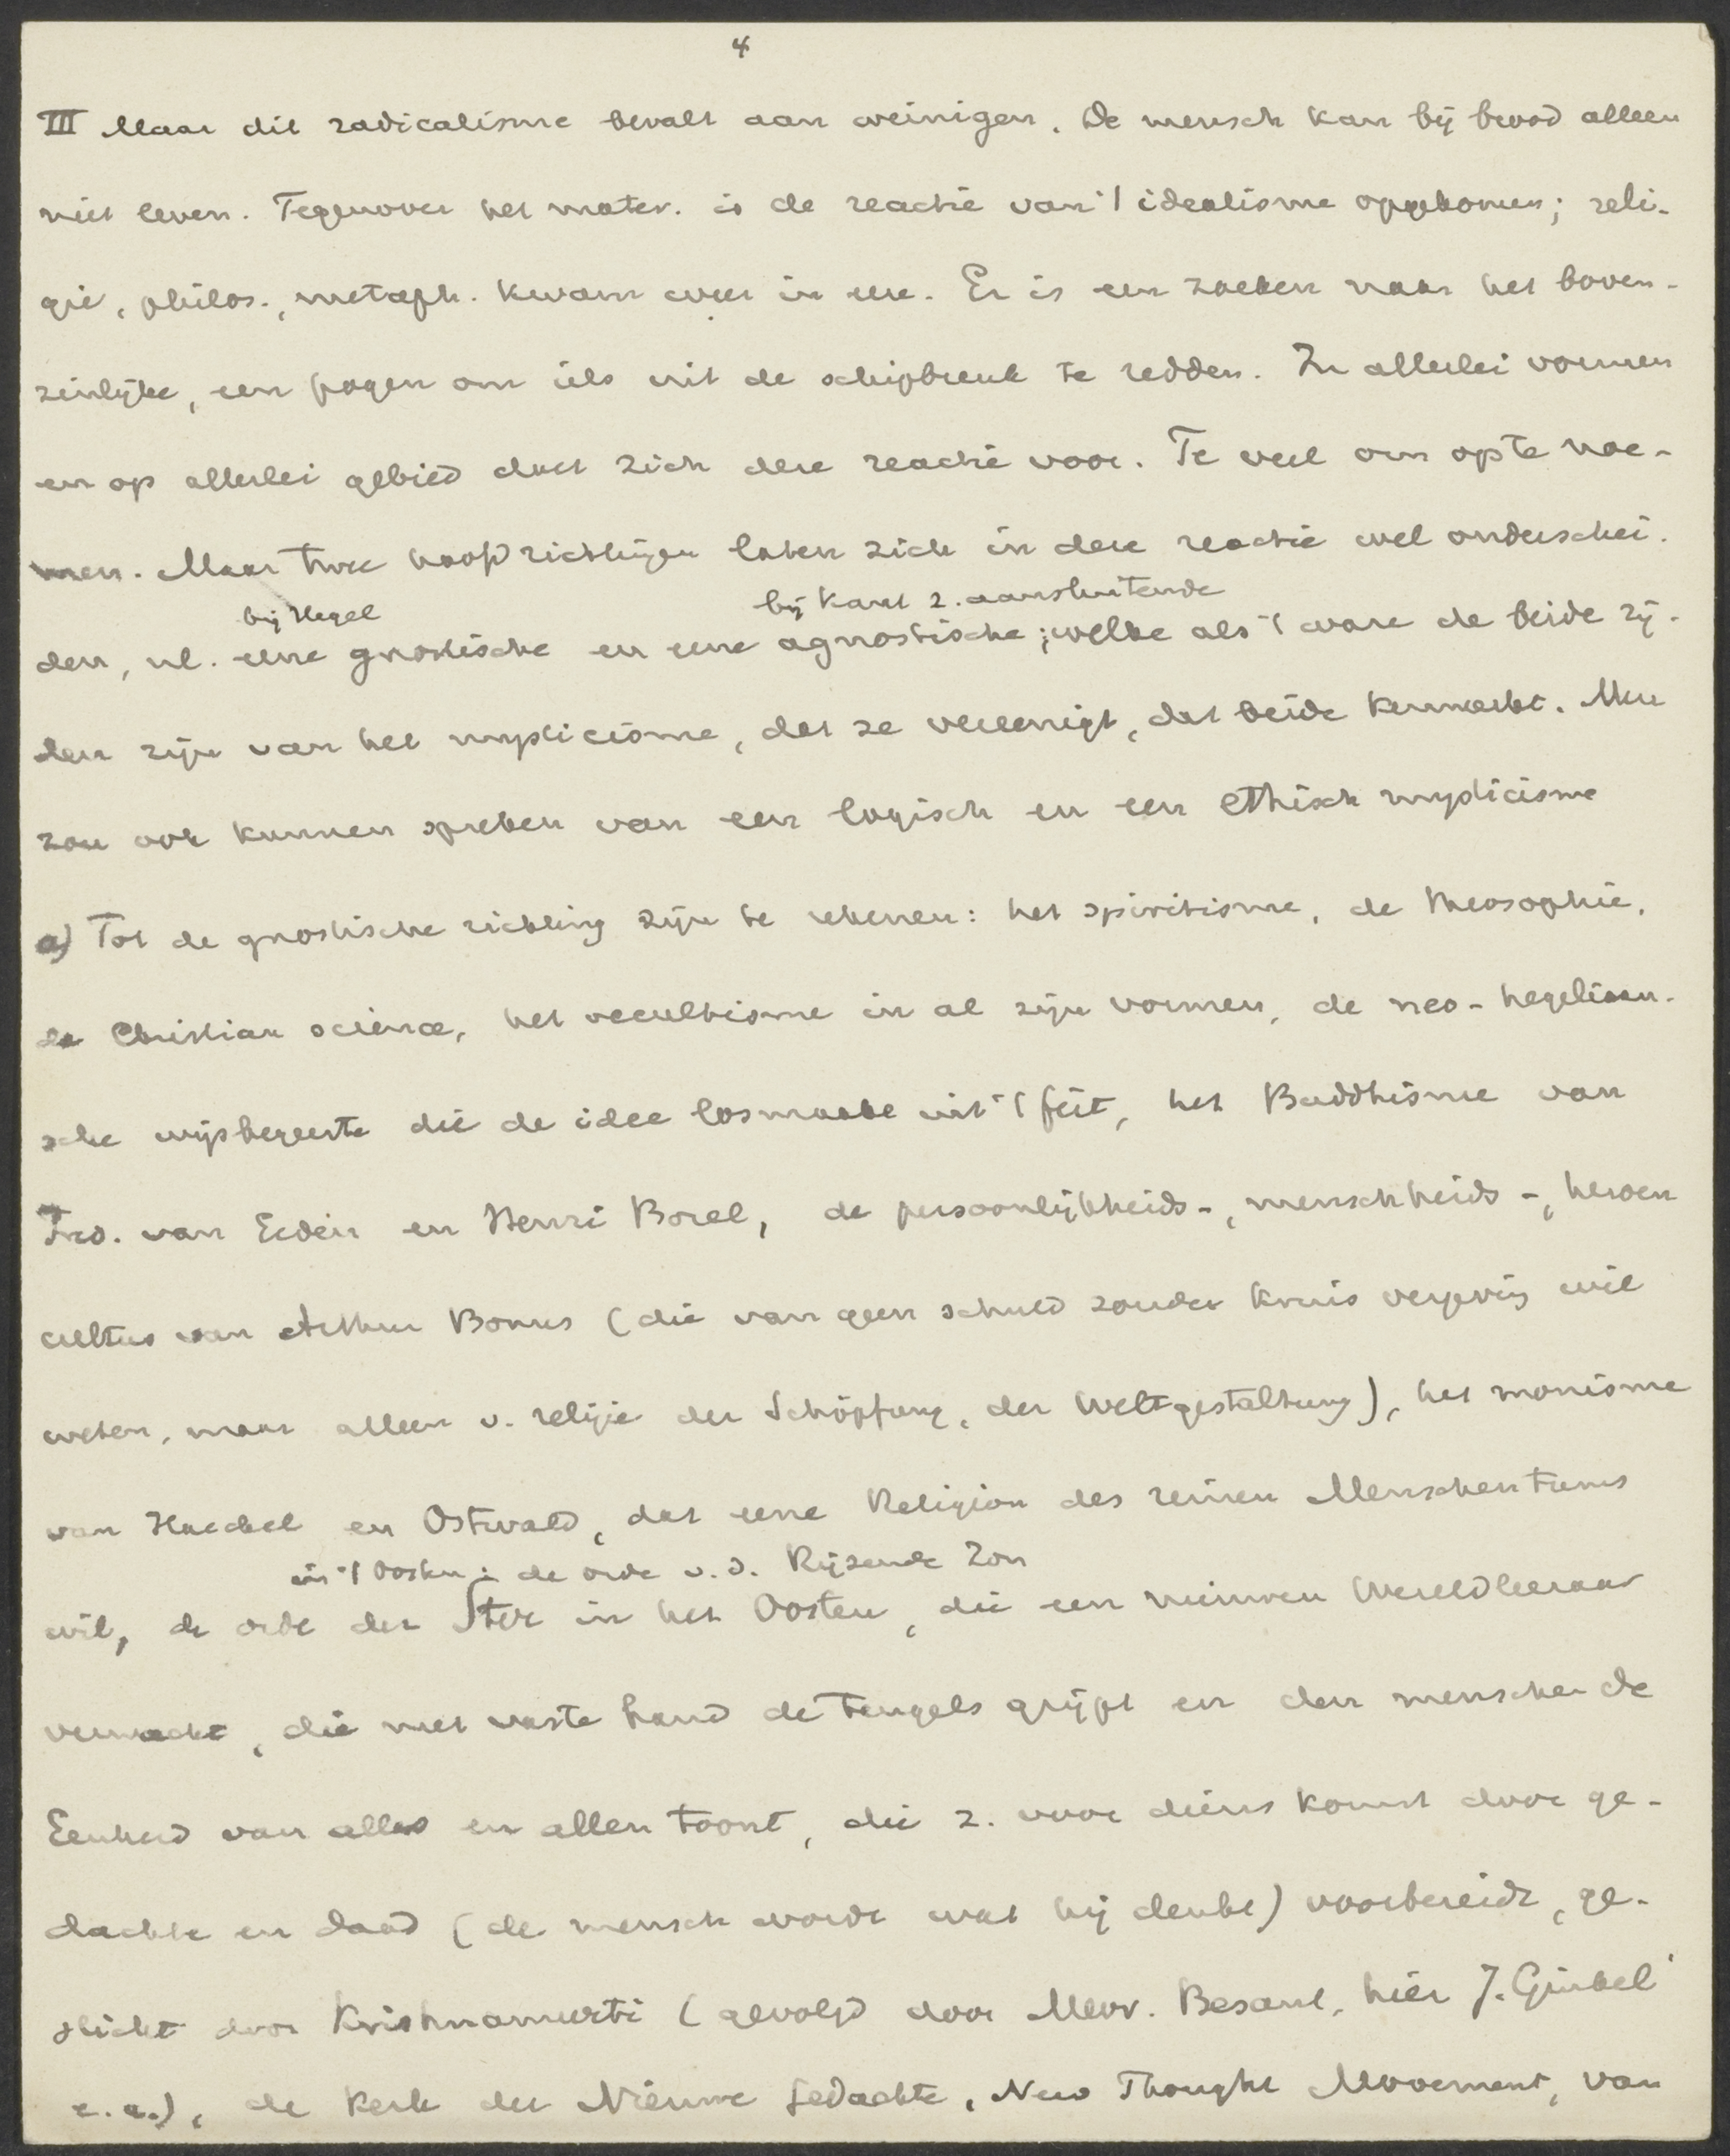 4
III Maar dit radicalisme bevalt aan weinigen. De mensch kan bij brood alleen
niet leven. Tegenover het mater. is de reactie van 't idealisme opgekomen; reli-
gie, philos., metaph. kwam weer in eere. Er is een zoeken naar het boven-
zinlijke, een pogen om iets uit de schipbreuk te redden. In allerlei vormen
en op allerlei gebied doet zich deze reactie voor. Te veel om op te noe-
men. Maar twee hoofdrichtingen laten zich in deze reactie wel onderschei-
bij Hegel bij Kant z. aansluitende
den, nl. eene gnostische en eene agnostische; welke als 't ware de beide zij-
den zijn van het mysticisme, dat ze vereenigt, dat beide kenmerkt. Men
zou ook kunnen spreken van een logisch en een ethisch mysticisme
a) Tot de gnostische richting zijn te rekenen: het spiritisme, de theosophie,
de Christian science, het occultisme in al zijn vormen, de neo-hegeliaan-
sche wijsbegeerte die de idee losmaakt uit 't feit, het Buddhisme van
Fred. van Eeden en Henri Borel, de persoonlijkheids-, menschheids-, heroen
cultus van Arthur Bonus (die van geen schuld zonder kruis vergeving wil
weten, maar alleen v. religie der Schöpfung, der Weltgestaltung), het monisme
van Haeckel en Ostwald, dat eene Religion des reinen Menschentums
in 't Oosten: de orde v. d. Rijzende Zon
wil, de orde der Ster in het Oosten, die een nieuwen Wereldleeraar
verwacht, die met vaste hand de teugels grijpt en den menschen de
Eenheid van alles en allen toont, die z. voor diens komst door ge-
dachte en daad (de mensch wordt wat hij denkt) voorbereidt, ge-
sticht door Krishnamurti (gevolgd door Mevr. Besant, hier J.
e.a.), de Kerk der Nieuwe Gedachte, New Thought Movement, van